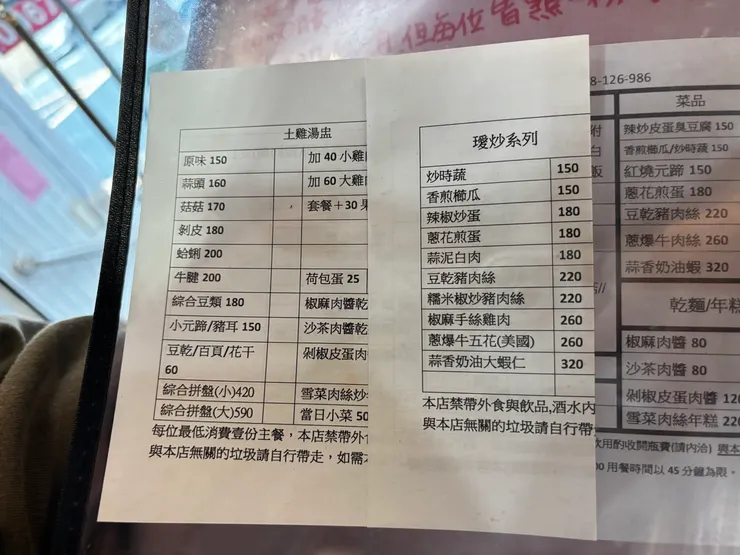 但每位皆點一份
土雞湯盅
原味 150 加 40 小雞
蒜頭 160 加 60 大雞
菇菇 170 套餐+30
剝皮 180
蛤蜊 200
牛腱 200 荷包蛋 25
綜合豆類 180 椒麻肉醬乾
小元蹄/豬耳 150 沙茶肉醬乾
豆乾/百頁/花干 剁椒皮蛋肉
60
綜合拼盤(小)420 雪菜肉絲炒
綜合拼盤(大)590 當日小菜 50
每位最低消費壹份主餐，本店禁帶外
與本店無關的垃圾請自行帶走，如需
璦炒系列
炒時蔬 150
香煎櫛瓜 150
辣椒炒蛋 180
蔥花煎蛋 180
蒜泥白肉 180
豆乾豬肉絲 220
糯米椒炒豬肉絲 220
椒麻手絲雞肉 260
蔥爆牛五花(美國) 260
蒜香奶油大蝦仁 320
本店禁帶外食與飲品,酒水內
與本店無關的垃圾請自行帶
8-126-986
附
白
飯
菜品
辣炒皮蛋臭豆腐 150
香煎櫛瓜/炒時蔬 150
紅燒元蹄 150
蔥花煎蛋 180
豆乾豬肉絲 220
蔥爆牛肉絲 260
蒜香奶油蝦 320
乾麵/年糕
椒麻肉醬 80
沙茶肉醬 80
剁椒皮蛋肉醬 12
雪菜肉絲年糕 220
飲用酌收開瓶費(請內洽) 與本
00 用餐時間以 45 分鐘為限。